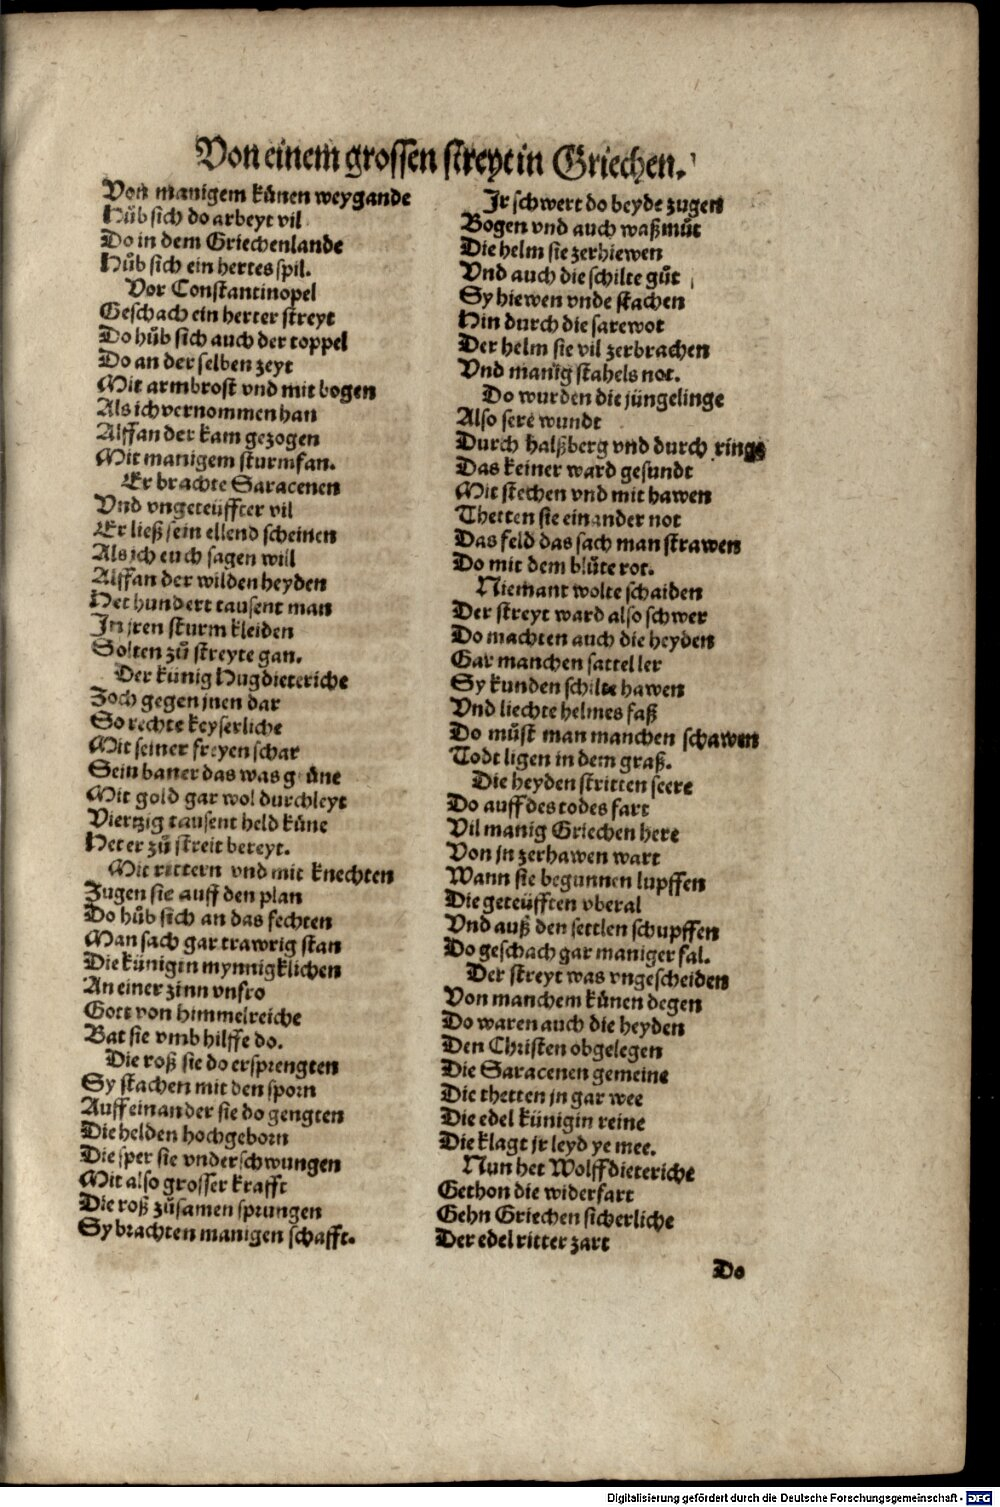 Von einem grossen streyt in Griechen.
Von manigem künen weygande
Hůb sich do arbeyt vil
Do in dem Griechenlande
Hůb sich ein hertes spil.
Vor Constantinopel
Geschach ein herter streyt
Do hůb sich auch der toppel
Do an der selben zeyt
Mit armbrost vnd mit bogen
Als ich vernommen han
Alffan der kam gezogen
Mit manigem sturmfan.
Er brachte Saracenen
Vnd vngeteüffter vil
Er ließ sein ellend scheinen
Als ich euch sagen will
Alffan der wilden heyden
Het hundert tausent man
In jren sturm kleiden
Solten zů streyte gan.
Der künig Hugdieteriche
Zoch gegen jnen dar
So rechte keyserliche
Mit seiner freyen schar
Sein baner das was grüne
Mit gold gar wol durchleyt
Viertzig tausent held küne
Het er zů streit bereyt.
Mit rittern vnd mit knechten
Zugen sie auff den plan
Do hůb sich an das fechten
Man sach gar trawrig stan
Die künigin mynnigklichen
An einer zinn vnfro
Gott von himmelreiche
Bat sie vmb hilffe do.
Die roß sie do ersprengten
Sy stachen mit den sporn
Auff einander sie do gengten
Die helden hochgeborn
Die sper sie vnderschwungen
Mit also grosser krafft
Die roß zůsamen sprungen
Sy brachten manigen schafft.
Jr schwert do beyde zugen
Bogen vnd auch waßmůt
Die helm sie zerhiewen
Vnd auch die schilte gůt
Sy hiewen vnde stachen
Hin durch die sarewot
Der helm sie vil zerbrachen
Vnd manig stahels not.
Do wurden die jüngelinge
Also sere wundt
Durch halßberg vnd durch ringe
Das keiner ward gesundt
Mit stechen vnd mit hawen
Thetten sie einander not
Das feld das sach man strawen
Do mit dem blůte rot.
Niemant wolte schaiden
Der streyt ward also schwer
Do machten auch die heyden
Gar manchen sattel ler
Sy kunden schilte hawen
Vnd liechte helmes faß
Do můst man manchen schawen
Todt ligen in dem graß.
Die heyden stritten seere
Do auff des todes fart
Vil manig Griechen here
Von jn zerhawen wart
Wann sie begunnen lupffen
Die geteüfften vberal
Vnd auß den settlen schupffen
Do geschach gar maniger fal.
Der streyt was vngescheiden
Von manchem künen degen
Do waren auch die heyden
Den Christen obgelegen
Die Saracenen gemeine
Die thetten jn gar wee
Die edel künigin reine
Die klagt jr leyd ye mee.
Nun het Wolffdieteriche
Gethon die widerfart
Gehn Griechen sicherliche
Der edel ritter zart
Do
Digitalisierung gefördert durch die Deutsche Forschungsgemeinschaft - DFG